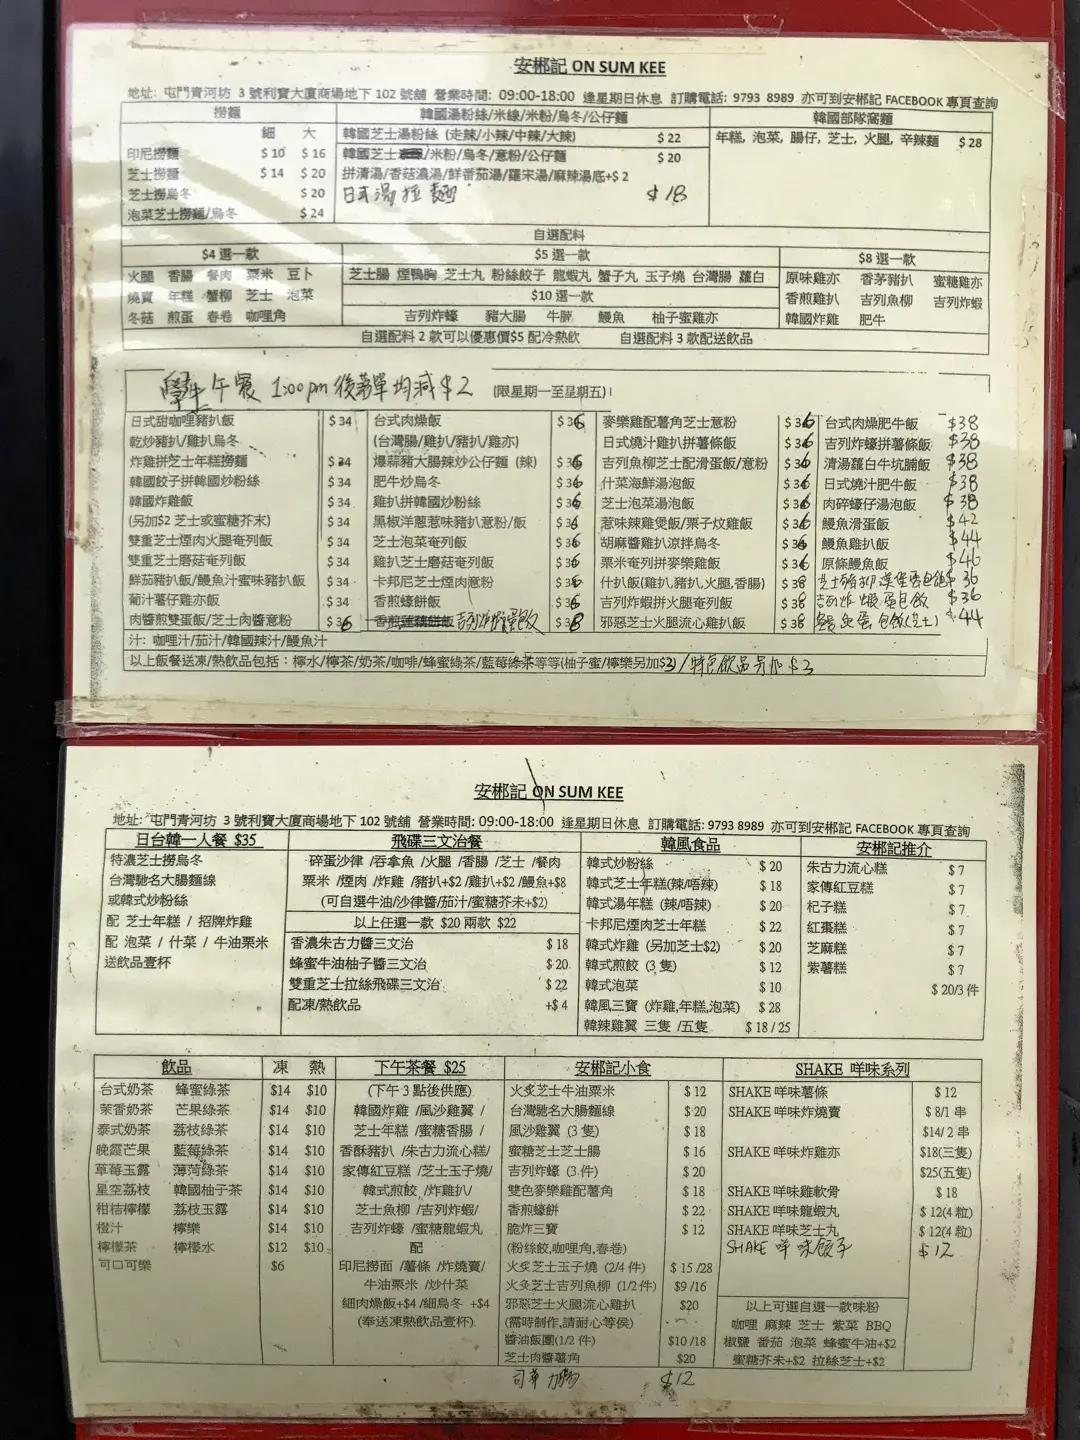 安郴記 ON SUM KEE
地址: 屯門青河坊 3 號利寶大廈商場地下 102 號舖 營業時間: 09:00-18:00 逢星期日休息 訂購電話: 9793 8989 亦可到安郴記 FACEBOOK 專頁查詢
撈麵
細 大
印尼撈麵 $10 $16
芝士撈麵 $14 $20
芝士撈烏冬 $20
泡菜芝士撈麵/烏冬 $24
韓國湯粉絲/米線/米粉/烏冬/公仔麵
韓國芝士湯粉絲 (走辣/小辣/中辣/大辣) $22
韓國芝士/米粉/烏冬/意粉/公仔麵 $20
拼清湯/香菇濃湯/鮮番茄湯/羅宋湯/麻辣湯底+$2
日式湯拉麵 $18
韓國部隊窩麵
年糕, 泡菜, 腸仔, 芝士, 火腿, 辛辣麵 $28
自選配料
$4 選一款
火腿 香腸 餐肉 粟米 豆卜
燒賣 年糕 蟹柳 芝士 泡菜
冬菇 煎蛋 春卷 咖喱角
$5 選一款
芝士腸 煙鴨胸 芝士丸 粉絲餃子 龍蝦丸 蟹子丸 玉子燒 台灣腸 蘿白
$10 選一款
吉列炸蠔 豬大腸 牛脷 鰻魚 柚子蜜雞亦
$8 選一款
原味雞亦 香茅豬扒 蜜糖雞亦
香煎雞扒 吉列魚柳 吉列炸蝦
韓國炸雞 肥牛
自選配料 2 款可以優惠價$5 配冷熱飲 自選配料 3 款配送飲品
學生午餐 1:00pm 後落單均減$2 (限星期一至星期五)
日式甜咖哩豬扒飯 $34
乾炒豬扒/雞扒烏冬
炸雞拼芝士年糕撈麵 $34
韓國餃子拼韓國炒粉絲 $34
韓國炸雞飯 $34
(另加$2 芝士或蜜糖芥末) $34
雙重芝士煙肉火腿奄列飯 $34
雙重芝士磨菇奄列飯 $34
鮮茄豬扒飯/鰻魚汁蜜味豬扒飯 $34
葡汁薯仔雞亦飯 $34
肉醬煎雙蛋飯/芝士肉醬意粉 $36
台式肉燥飯 $36
(台灣腸/雞扒/豬扒/雞亦)
爆蒜豬大腸辣炒公仔麵 (辣) $36
肥牛炒烏冬 $36
雞扒拼韓國炒粉絲 $36
黑椒洋蔥惹味豬扒意粉/飯 $36
芝士泡菜奄列飯 $36
雞扒芝士磨菇奄列飯 $36
卡邦尼芝士煙肉意粉 $36
香煎蠔餅飯 $36
香煎蓮藕餅飯 吉列炸蝦蛋飯 $38
麥樂雞配薯角芝士意粉 $36
日式燒汁雞扒拼薯條飯 $36
吉列魚柳芝士配滑蛋飯/意粉 $36
什菜海鮮湯泡飯 $36
芝士泡菜湯泡飯 $36
惹味辣雞煲飯/栗子炆雞飯 $36
胡麻醬雞扒涼拌烏冬 $36
粟米奄列拼麥樂雞飯 $36
什扒飯(雞扒,豬扒,火腿,香腸) $38
吉列炸蝦拼火腿奄列飯 $38
邪惡芝士火腿流心雞扒飯 $38
台式肉燥肥牛飯 $38
吉列炸蠔拼薯條飯 $38
清湯蘿白牛坑腩飯 $38
日式燒汁肥牛飯 $38
肉碎蠔仔湯泡飯 $38
鰻魚滑蛋飯 $42
鰻魚雞扒飯 $44
原條鰻魚飯 $46
芝士豬柳漢堡蛋包飯 $36
吉列炸蝦蛋包飯 $36
鰻魚蛋包飯(芝士) $44
汁: 咖喱汁/茄汁/韓國辣汁/鰻魚汁
以上飯餐送凍/熱飲品包括：檸水/檸茶/奶茶/咖啡/蜂蜜綠茶/藍莓綠茶等等(柚子蜜/檸樂另加$3) / 特色飲品另加 $3
安郴記 ON SUM KEE
地址: 屯門青河坊 3 號利寶大廈商場地下 102 號舖 營業時間: 09:00-18:00 逢星期日休息 訂購電話: 9793 8989 亦可到安郴記 FACEBOOK 專頁查詢
日台韓一人餐 $35
特濃芝士撈烏冬
台灣馳名大腸麵線
或韓式炒粉絲
配 芝士年糕 / 招牌炸雞
配 泡菜 / 什菜 / 牛油粟米
送飲品壹杯
飛碟三文治餐
碎蛋沙律 /吞拿魚 /火腿 /香腸 /芝士 /餐肉
粟米 /煙肉 /炸雞 /豬扒+$2 /雞扒+$2 /鰻魚+$8
(可自選牛油/沙律醬/茄汁/蜜糖芥末+$2)
以上任選一款 $20 兩款 $22
香濃朱古力醬三文治 $18
蜂蜜牛油柚子醬三文治 $20
雙重芝士拉絲飛碟三文治 $22
配凍/熱飲品 +$4
韓風食品
韓式炒粉絲 $20
韓式芝士年糕(辣/唔辣) $18
韓式湯年糕 (辣/唔辣) $20
卡邦尼煙肉芝士年糕 $22
韓式炸雞 (另加芝士$2) $20
韓式煎餃 (3 隻) $12
韓式泡菜 $10
韓風三寶 (炸雞,年糕,泡菜) $28
韓辣雞翼 三隻 /五隻 $18 / 25
安郴記推介
朱古力流心糕 $7
家傳紅豆糕 $7
杞子糕 $7
紅棗糕 $7
芝麻糕 $7
紫薯糕 $7
$20/3 件
飲品 凍 熱
台式奶茶 蜂蜜綠茶 $14 $10
茉香奶茶 芒果綠茶 $14 $10
泰式奶茶 荔枝綠茶 $14 $10
晚霞芒果 藍莓綠茶 $14 $10
草莓玉露 薄菏綠茶 $14 $10
星空荔枝 韓國柚子茶 $14 $10
柑桔檸檬 荔枝玉露 $14 $10
橙汁 檸樂 $14 $10
檸檬茶 檸檬水 $12 $10
可口可樂 $6
下午茶餐 $25
(下午 3 點後供應)
韓國炸雞 /風沙雞翼 /
芝士年糕 /蜜糖香腸 /
香酥豬扒 /朱古力流心糕/
家傳紅豆糕 /芝士玉子燒/
韓式煎餃 /炸雞扒/
芝士魚柳 /吉列炸蝦/
吉列炸蠔 /蜜糖龍蝦丸
配
印尼撈面 /薯條 /炸燒賣/
牛油粟米 /炒什菜
細肉燥飯+$4 /細烏冬 +$4
(奉送凍熱飲品壹杯)
安郴記小食
火炙芝士牛油粟米 $12
台灣馳名大腸麵線 $20
風沙雞翼 (3 隻) $18
蜜糖芝士芝士腸 $16
吉列炸蠔 (3 件) $20
雙色麥樂雞配薯角 $18
香煎蠔餅 $22
脆炸三寶 $12
(粉絲餃,咖喱角,春卷)
火炙芝士玉子燒 (2/4 件) $15 /28
火炙芝士吉列魚柳 (1/2 件) $9 /16
邪惡芝士火腿流心雞扒 $20
(需時制作,請耐心等侯)
醬油飯團(1/2 件) $10 /18
芝士肉醬薯角 $20
$12
SHAKE 咩味系列
SHAKE 咩味薯條 $12
SHAKE 咩味炸燒賣 $8/1 串
$14/ 2 串
SHAKE 咩味炸雞亦 $18(三隻)
$25(五隻)
SHAKE 咩味雞軟骨 $18
SHAKE 咩味龍蝦丸 $12(4 粒)
SHAKE 咩味芝士丸 $12(4 粒)
SHAKE 咩味餃子 $12
以上可選自選一款味粉
咖哩 麻辣 芝士 紫菜 BBQ
椒鹽 番茄 泡菜 蜂蜜牛油+$2
蜜糖芥未+$2 拉絲芝士+$2